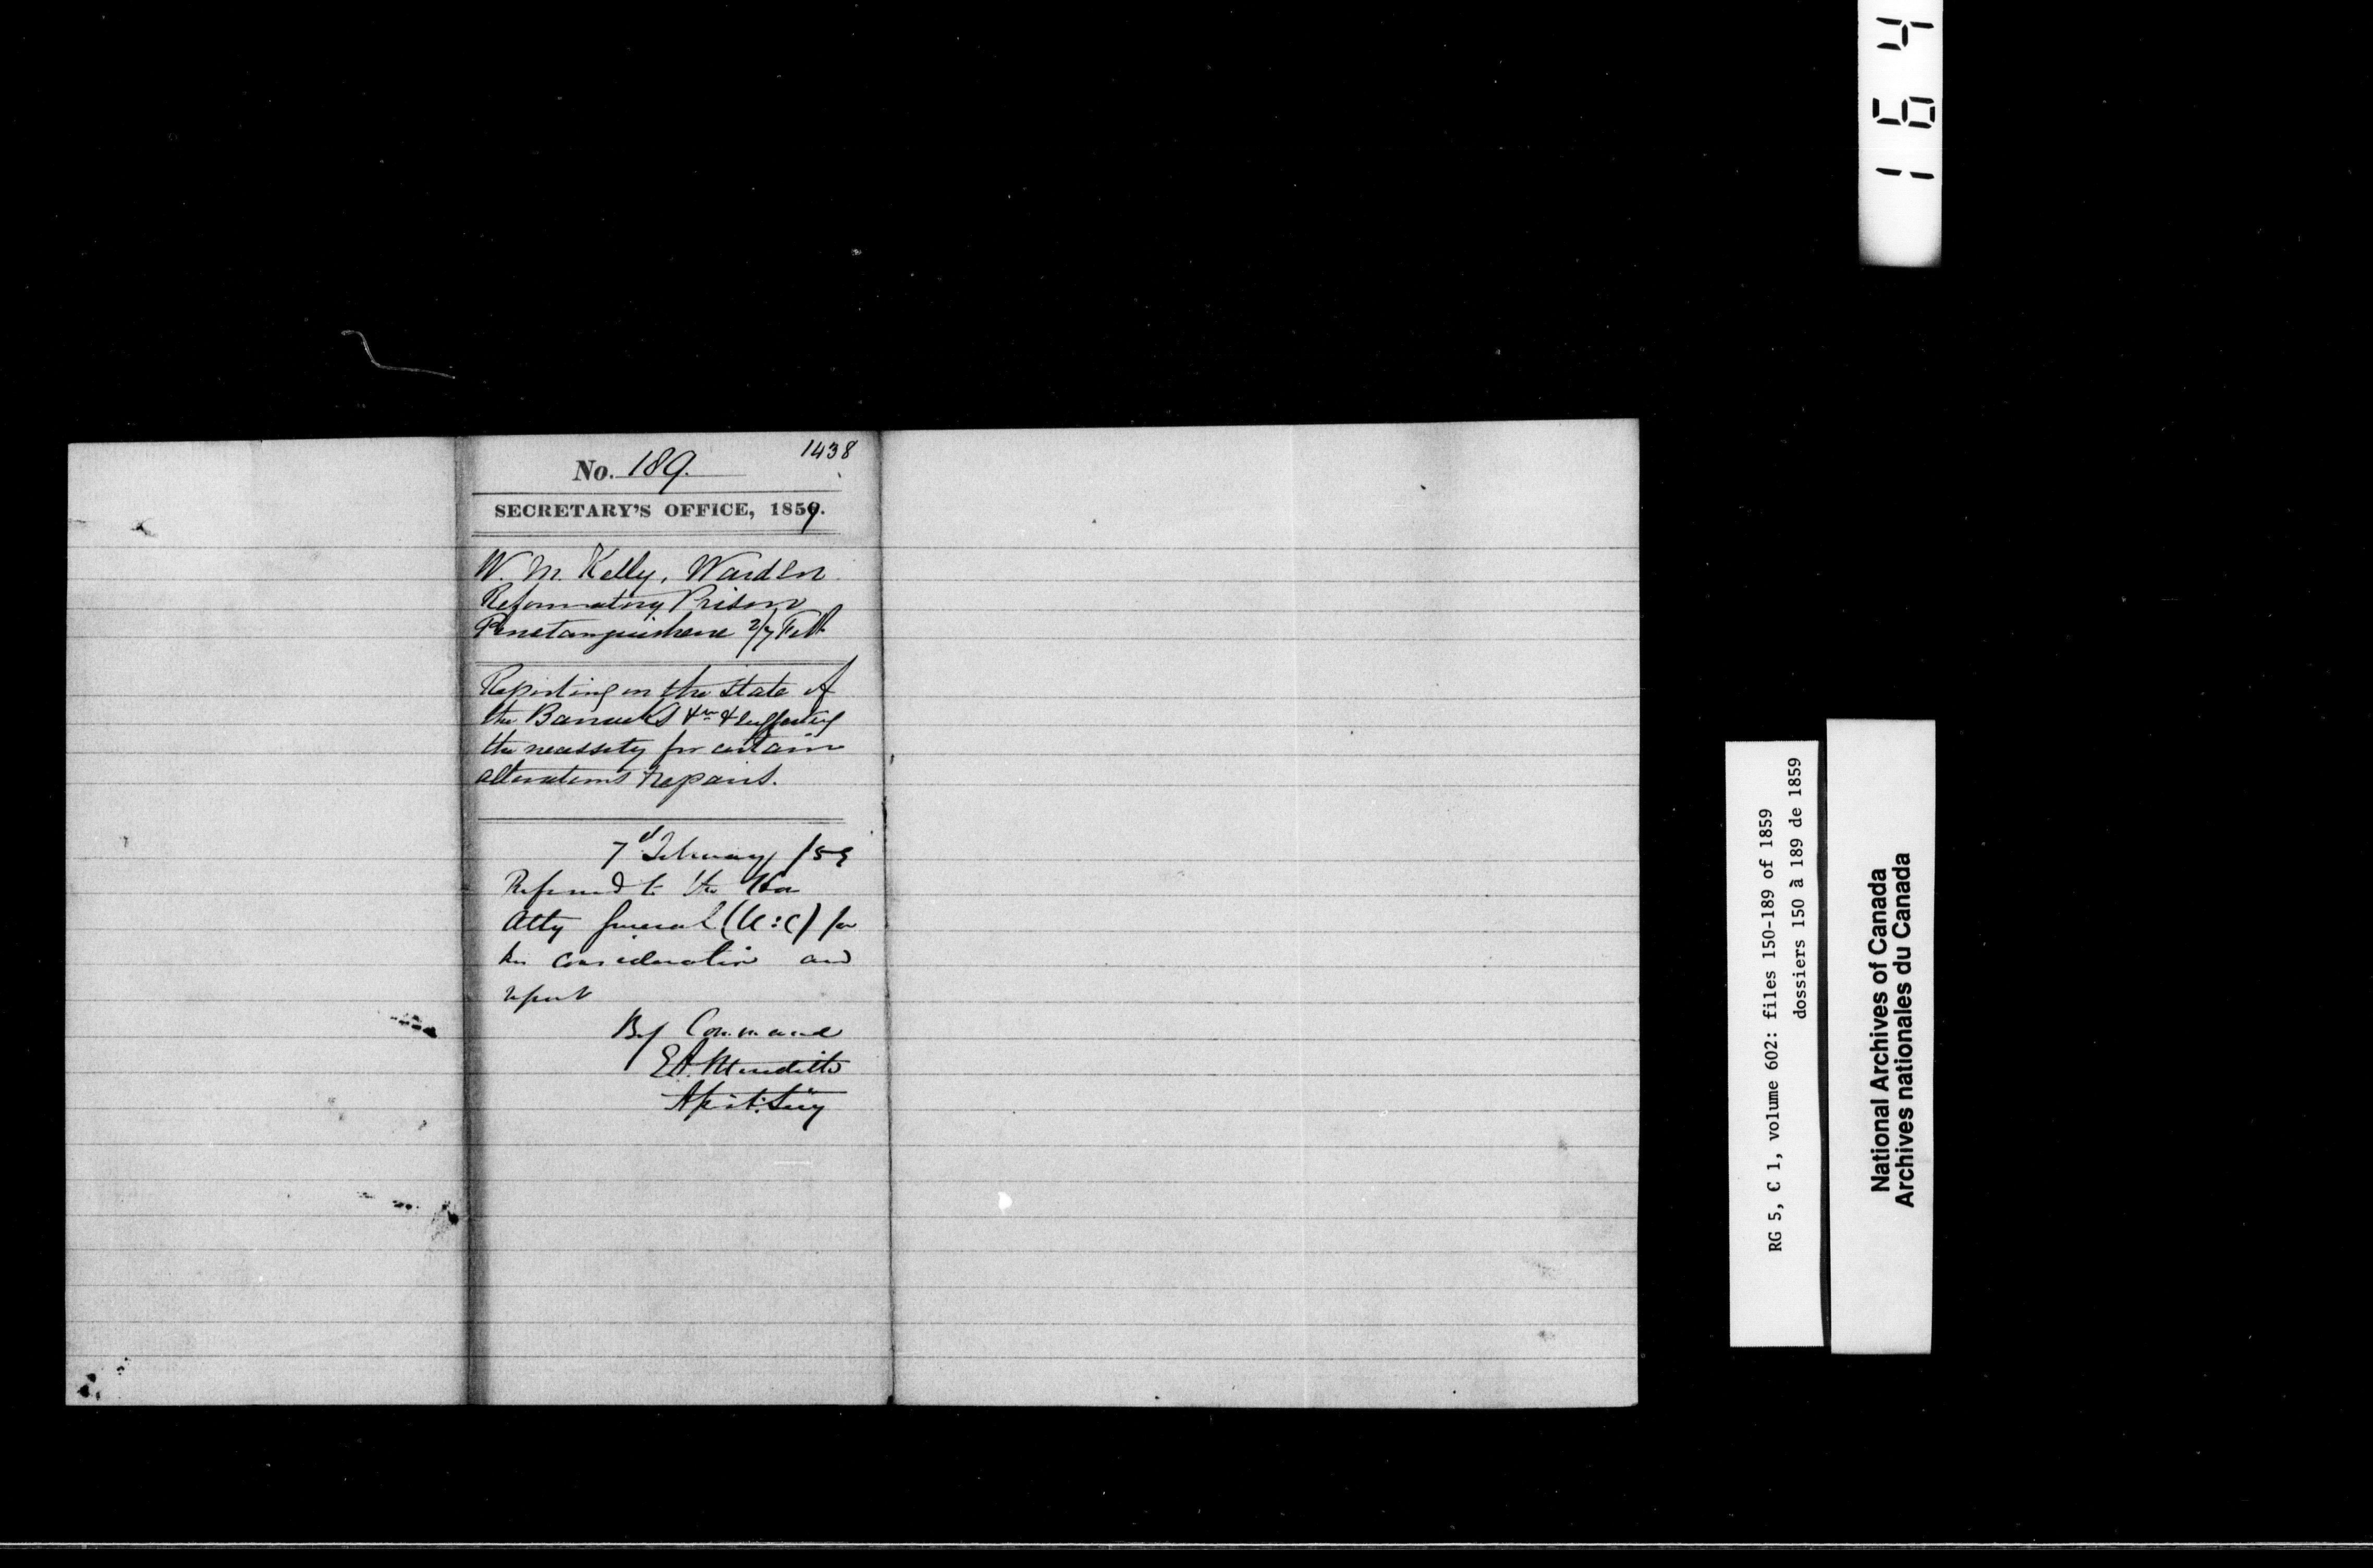 1438
No. 189.
SECRETARY'S OFFICE, 1859.
W. M. Kelly, Warden
Reformatory Prison
Penetanguishene 2/7 Feb.
Reporting on the state of
the Barracks &c & suggesting
the necessity for certain
alterations & repairs.
7 February /59
Referred to the Hon
Atty General (U:C) for
his consideration and
report
By Command
E.A. Meredith
Asst. Secy
164
RG 5, C 1, volume 602: files 150-189 of 1859
dossiers 150 à 189 de 1859
National Archives of Canada
Archives nationales du Canada